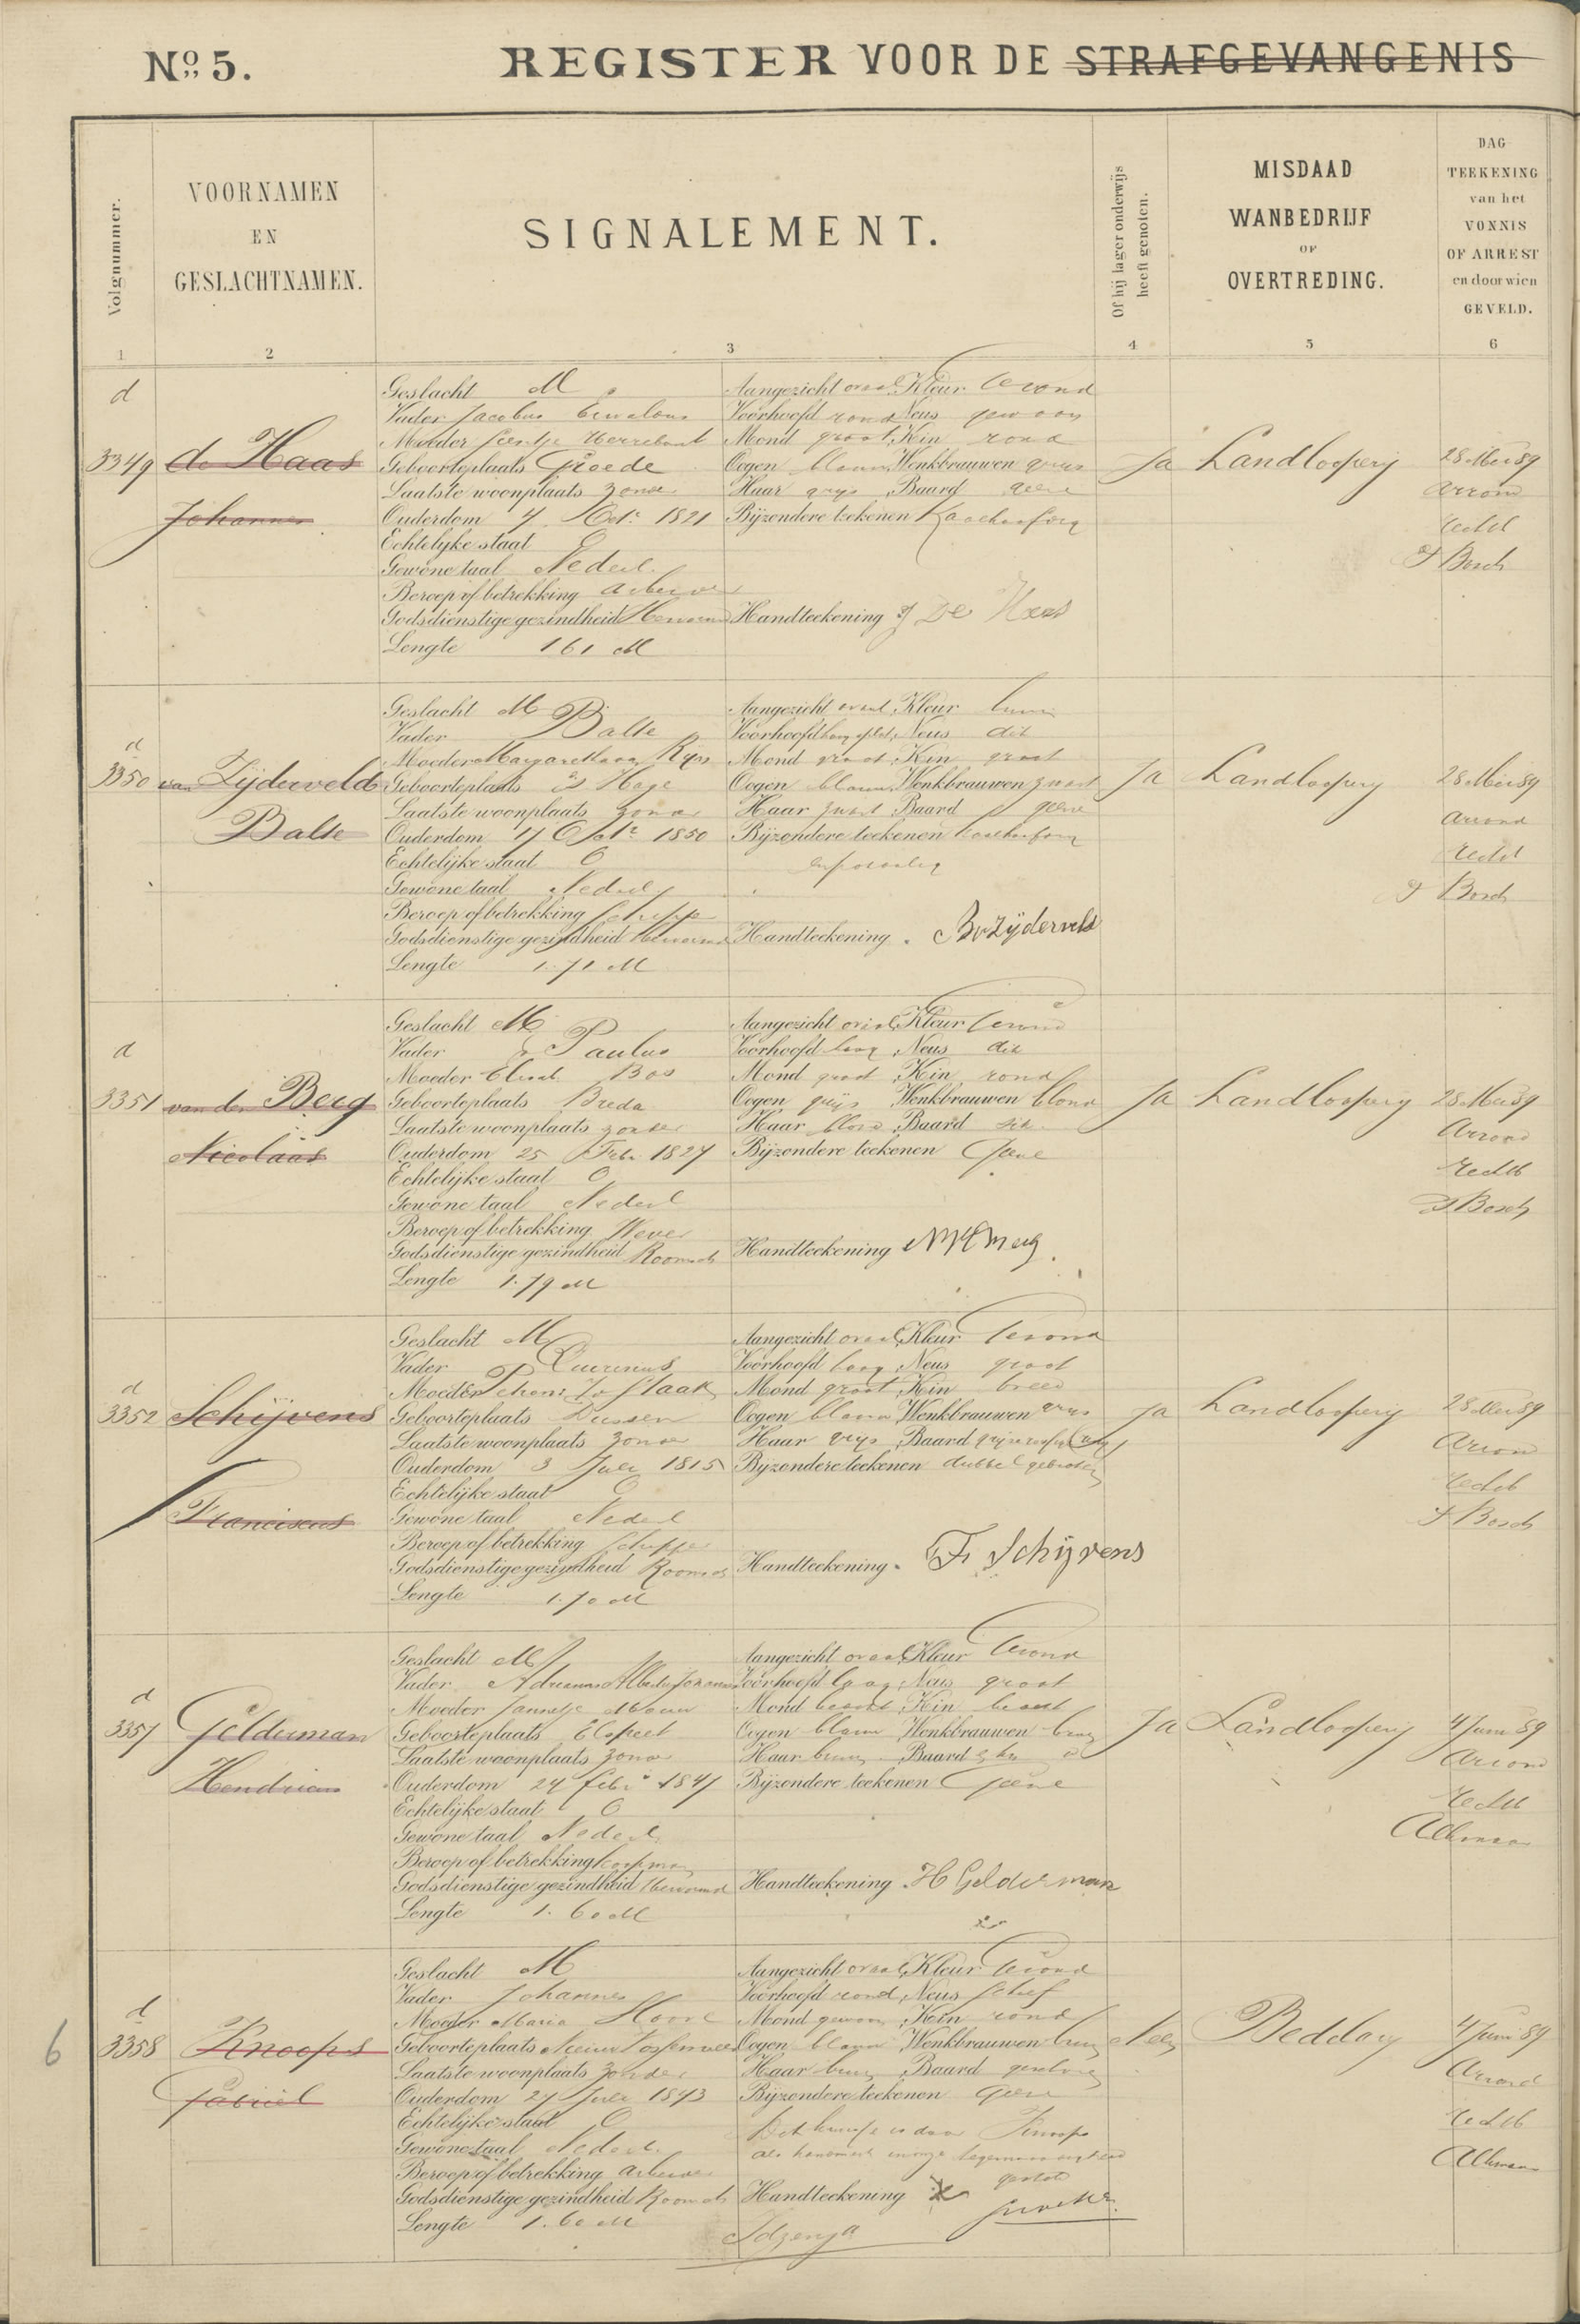 Nº 5.
REGISTER VOOR DE STRAFGEVANGENIS
Volgnummer.
VOORNAMEN
EN
GESLACHTNAMEN.
SIGNALEMENT.
Of hij lager onderwijs
heeft genoten.
MISDAAD
WANBEDRIJF
OF
OVERTREDING.
DAG
TEEKENING
van het
VONNIS
OF ARREST
en door wien
GEVELD.
1 2 3 4 5 6
d
3349 de Haas
Johannes
Geslacht M
Vader Jacobus
Moeder
Geboorteplaats Groede
Laatste woonplaats zonder
Ouderdom 4 Oct. 1821
Echtelijke staat O
Gewone taal Nederl.
Beroep of betrekking arbeider
Godsdienstige gezindheid Hervormd
Lengte 161 M
Aangezicht ovaal Kleur gezond
Voorhoofd rond Neus gewoon
Mond groot Kin rond
Oogen blauw Wenkbrauwen grijs
Haar grijs Baard geene
Bijzondere teekenen
Handteekening J De Haas
Ja
Landlooperij
28 Mei 89
Arrond
rechtb
's Bosch
d
3350 van Zijderveld
Balte
Geslacht M
Vader Balte
Moeder Margaretha
Geboorteplaats 's Hage
Laatste woonplaats zonder
Ouderdom 1850
Echtelijke staat O
Gewone taal Nederl
Beroep of betrekking schipper
Godsdienstige gezindheid Hervormd
Lengte 1.71 M
Aangezicht ovaal Kleur bruin
Voorhoofd Neus dik
Mond groot Kin groot
Oogen blauw Wenkbrauwen zwart
Haar zwart Baard geene
Bijzondere teekenen
Handteekening. BvZijderveld
Ja
Landlooperij
28 Mei 89
Arrond
rechtb
's Bosch
d
3351 van den Berg
Nicolaas
Geslacht M
Vader Paulus
Moeder Elisab. Bos
Geboorteplaats Breda
Laatste woonplaats zonder
Ouderdom 25 Feb. 1827
Echtelijke staat O
Gewone taal Nederl
Beroep of betrekking Wever
Godsdienstige gezindheid Roomsch
Lengte 1.79 M
Aangezicht ovaal Kleur gezond
Voorhoofd laag Neus dik
Mond groot Kin rond
Oogen grijs Wenkbrauwen blond
Haar blond Baard
Bijzondere teekenen Geene
Handteekening
Ja
Landlooperij
28 Mei 89
Arrond
rechtb
's Bosch
d
3352 Schijvens
Franciscus
Geslacht M
Vader Quirinus
Moeder
Geboorteplaats Dussen
Laatste woonplaats zonder
Ouderdom 3 Juli 1815
Echtelijke staat O
Gewone taal Nederl
Beroep of betrekking schipper
Godsdienstige gezindheid Roomsch
Lengte 1.70 M
Aangezicht ovaal Kleur gezond
Voorhoofd hoog Neus groot
Mond groot Kin breed
Oogen blauw Wenkbrauwen grijs
Haar grijs Baard
Bijzondere teekenen dubbel gebroken
Handteekening. F. Schijvens
Ja
Landlooperij
28 Mei 89
Arrond
rechtb
's Bosch
d
3357 Gelderman
Hendricus
Geslacht M
Vader Adrianus Albertus Johannes
Moeder Jannetje
Geboorteplaats Elspeet
Laatste woonplaats zonder
Ouderdom 24 Febr 1847
Echtelijke staat O
Gewone taal Nederl
Beroep of betrekking koopman
Godsdienstige gezindheid Hervormd
Lengte 1.60 M
Aangezicht ovaal Kleur gezond
Voorhoofd laag Neus groot
Mond Kin
Oogen blauw Wenkbrauwen bruin
Haar bruin Baard
Bijzondere teekenen Geene
Handteekening. H Gelderman
Ja
Landlooperij
4 Juni 89
Arrond
rechtb
Alkmaar
6
d
3358 Knoops
Gabriël
Geslacht M
Vader Johannes
Moeder Maria
Geboorteplaats Nieuw Vossemeer
Laatste woonplaats zonder
Ouderdom 27 Juli 1843
Echtelijke staat O
Gewone taal Nederl.
Beroep of betrekking arbeider
Godsdienstige gezindheid Roomsch
Lengte 1.60 M
Aangezicht ovaal Kleur gezond
Voorhoofd rond Neus scheef
Mond gewoon Kin rond
Oogen blauw Wenkbrauwen bruin
Haar bruin Baard
Bijzondere teekenen Geene
Dit kruisje is door Knoops
als
gesteld
Handteekening x
Idzenga
Neen
Bedelarij
4 Juni 89
Arrond
rechtb
Alkmaar